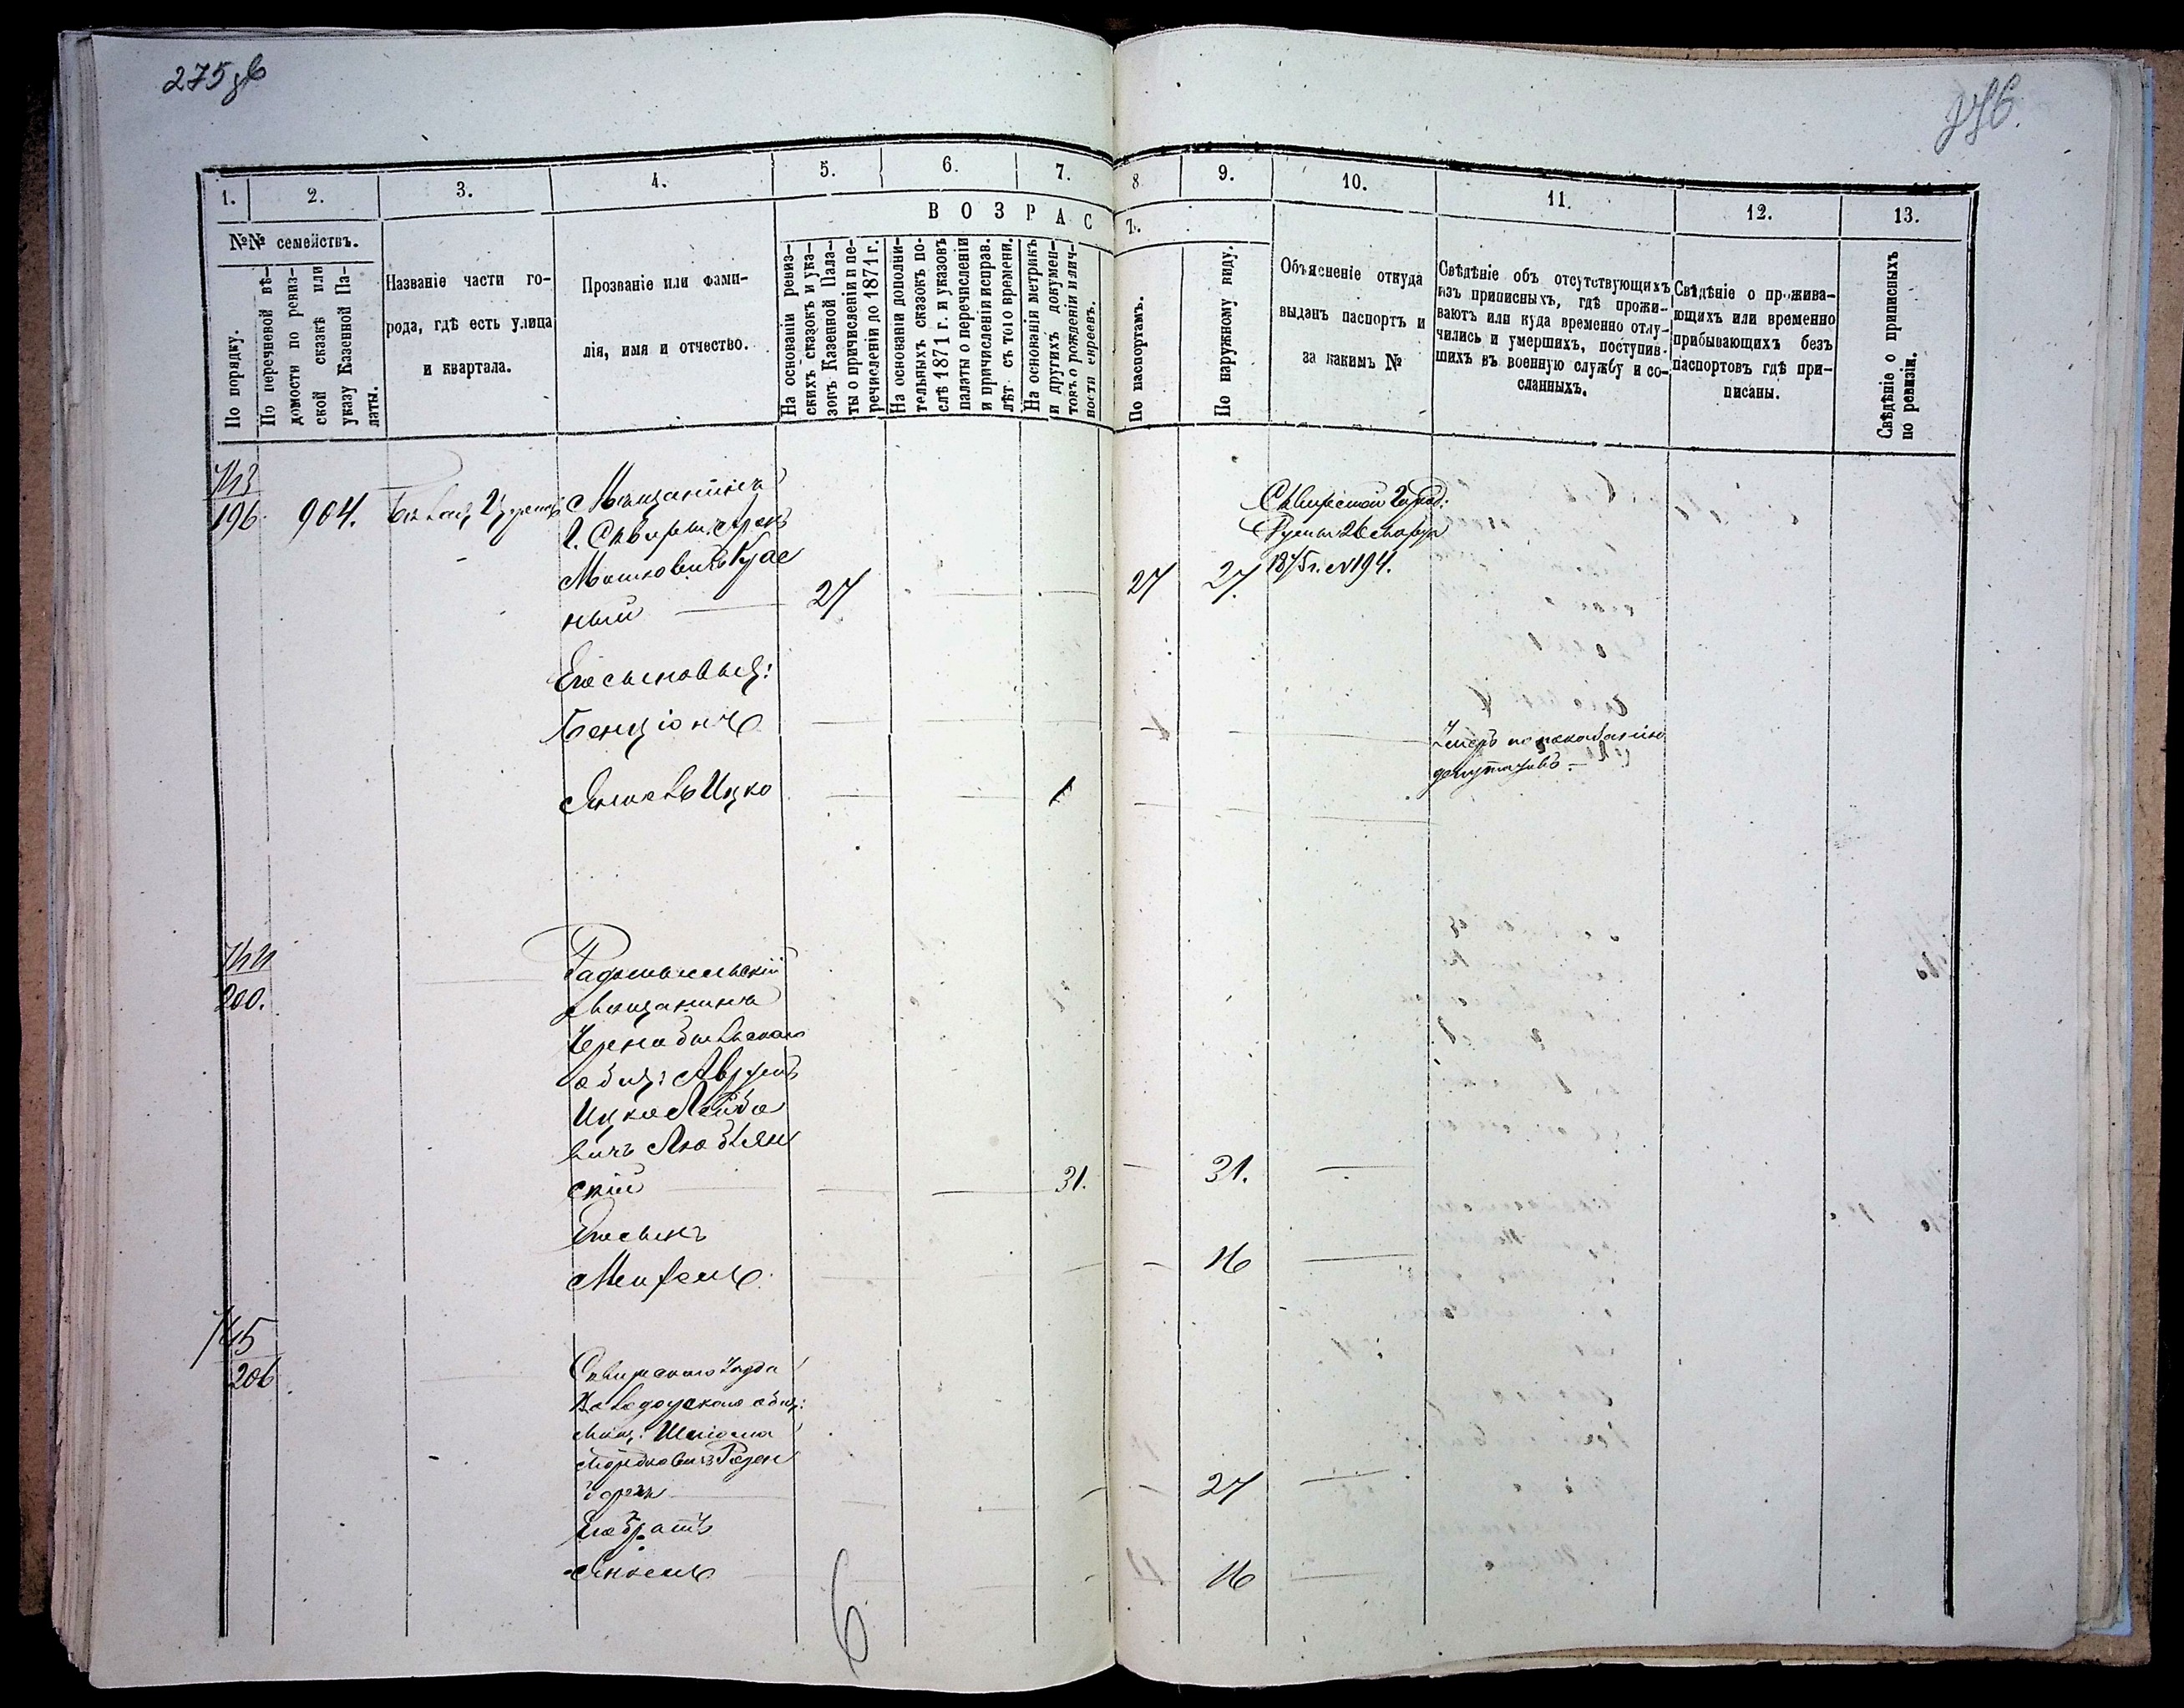 275 об
276.
1.
2.
3.
4.
5.
6.
7.
8
9.
10.
11.
12.
13.
№№ семействъ.
В О З Р А С
Т.
По порядку.
По перечневой вѣ-
домости по ревиз-
ской сказкѣ или
указу Казенной Па-
латы.
Названіе части го-
рода, гдѣ есть улица
и квартала.
Прозваніе или фами-
лія, имя и отчество.
На основаніи ревиз-
скихъ сказокъ и ука-
зокъ Казенной Пала-
ты о причисленіи и пе-
речисленіи до 1871 г.
На основаніи дополни-
тельныхъ сказокъ по-
слѣ 1871 г. и указовъ
палаты о перечисленіи
и причисленіи исправ.
лѣт съ того времени.
На основаніи метрикъ
и другихъ докумен-
товъ о рожденіи и лич-
ности евреевъ.
По паспортамъ.
По наружному виду.
Объясненіе откуда
выданъ паспортъ и
за какимъ №
Свѣдѣніе объ отсутствующихъ
изъ приписныхъ, гдѣ прожи-
ваютъ или куда временно отлу-
чились и умершихъ, поступив-
шихъ въ военную службу и со-
сланныхъ.
Свѣдѣніе о прожива-
ющихъ или временно
прибывающихъ безъ
паспортовъ гдѣ при-
писаны.
Свѣдѣніе о приписныхъ
по ревизіи.
743
196. 904.
Мѣщанинъ
г. Сквиры
Мошковичъ Крас
ный 27 27 27.
Сквирской Город:
Думы 26 Марта
1875 г. № 194.
Его сыновья:
Бенціонъ
Умеръ по показанію
депутатовъ.
Янкель Ицко 1
744
200.
Радомысльскій
мѣщанинъ
Чернобыльскаго
общ: Аврумъ
Ицко Лейбо
вичъ
скій 31. 31.
Его сынъ
16
745
206
Сквирскаго Уѣзда
общ:
мѣщ: Шліома
Мордковичъ Розен
27
Его братъ
Янкель 16
6